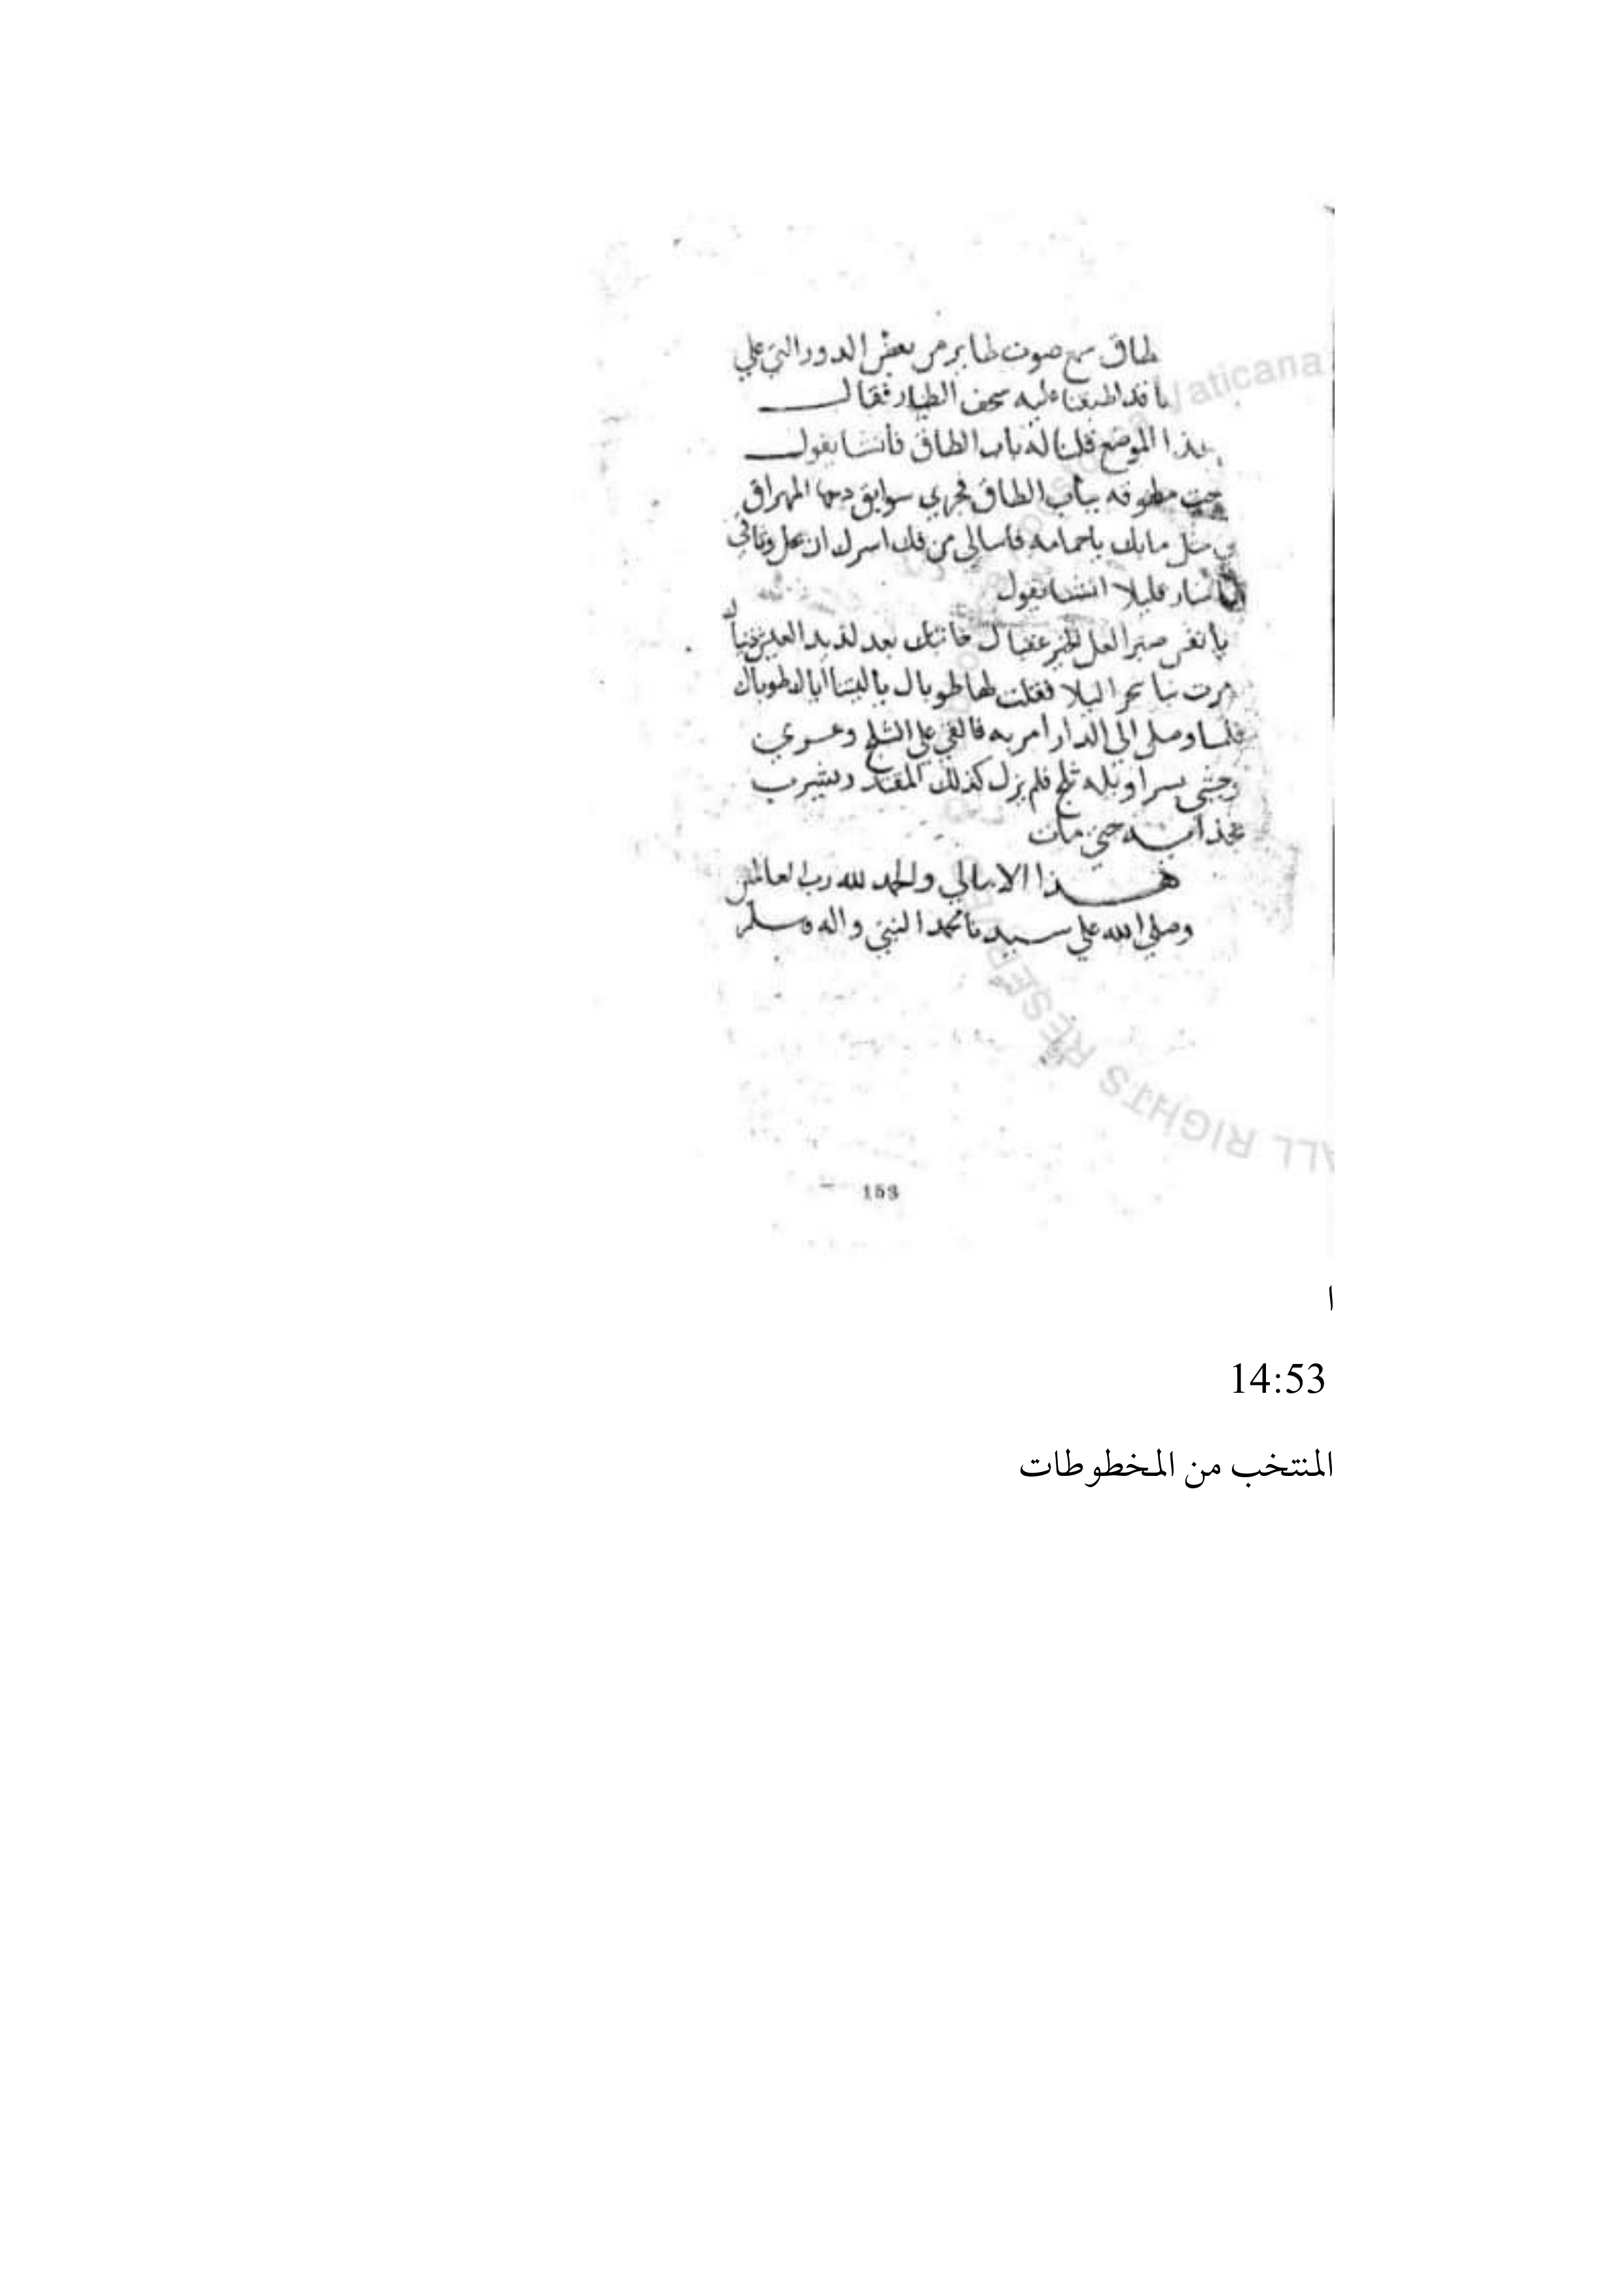 طاق سمع صوت طاير من بعض الدور التي علي
قد اطبقنا عليه سجف الطيار فقال
هذا الموضع قلنا له باب الطاق فانشا يقول
مطوقه بباب الطاق فجري سوابق دمعها المهراق
مثل مابك ياحمامه فاسالي من فك اسرك ان يحل وثاقي
سار قليلا انشا يقول
يا نفس صبرا لعل الخير عقباك خانتك بعد لذيذ العيش دنياك
مرت بنا سحرا فقلت لها طوباك ياليتنا اياك طوباك
فلما وصل الي الدار امر به فالقي علي الثلج وعري
وحشي سراويله ثلج فلم يزل كذلك المقتدر يشرب
حتي مات
هذا الامالي والحمد لله رب العالمين
وصلي الله علي سيدنا محمد النبي واله وسلم
Vaticana
ALL RIGHTS RESERVED
153
ا
14:53
المنتخب من المخطوطات